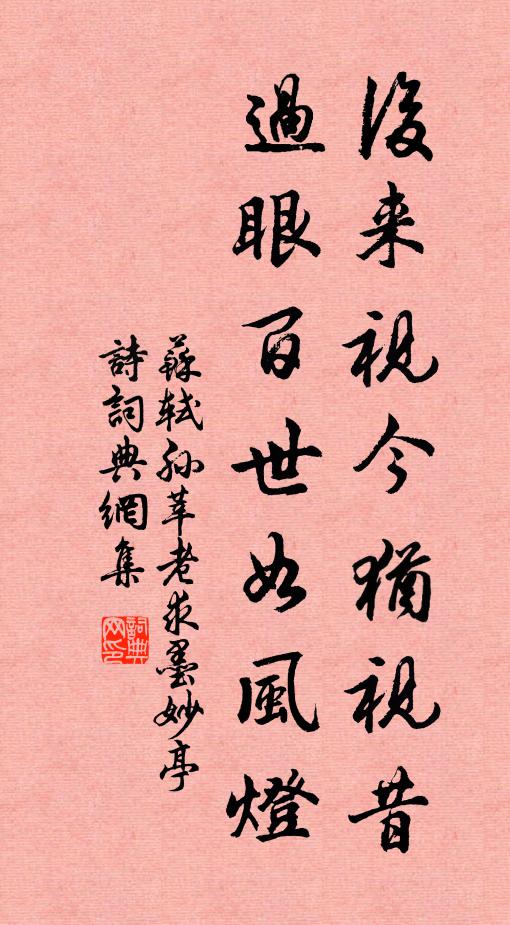 後来視今猶視昔
過眼百世如風燈
蘇軾孫莘老求墨妙亭
詩詞典網集
詞典网印